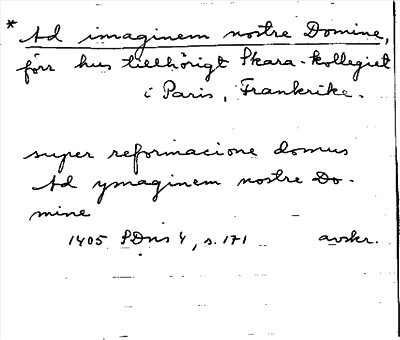 * Ad imaginem nostre Domine,
förr hus tillhörigt Skara-kollegiet
i Paris, Frankrike.
super reformacione domus
Ad ymaginem nostre Do-
mine
1405 SDns 1, s. 171 avskr.